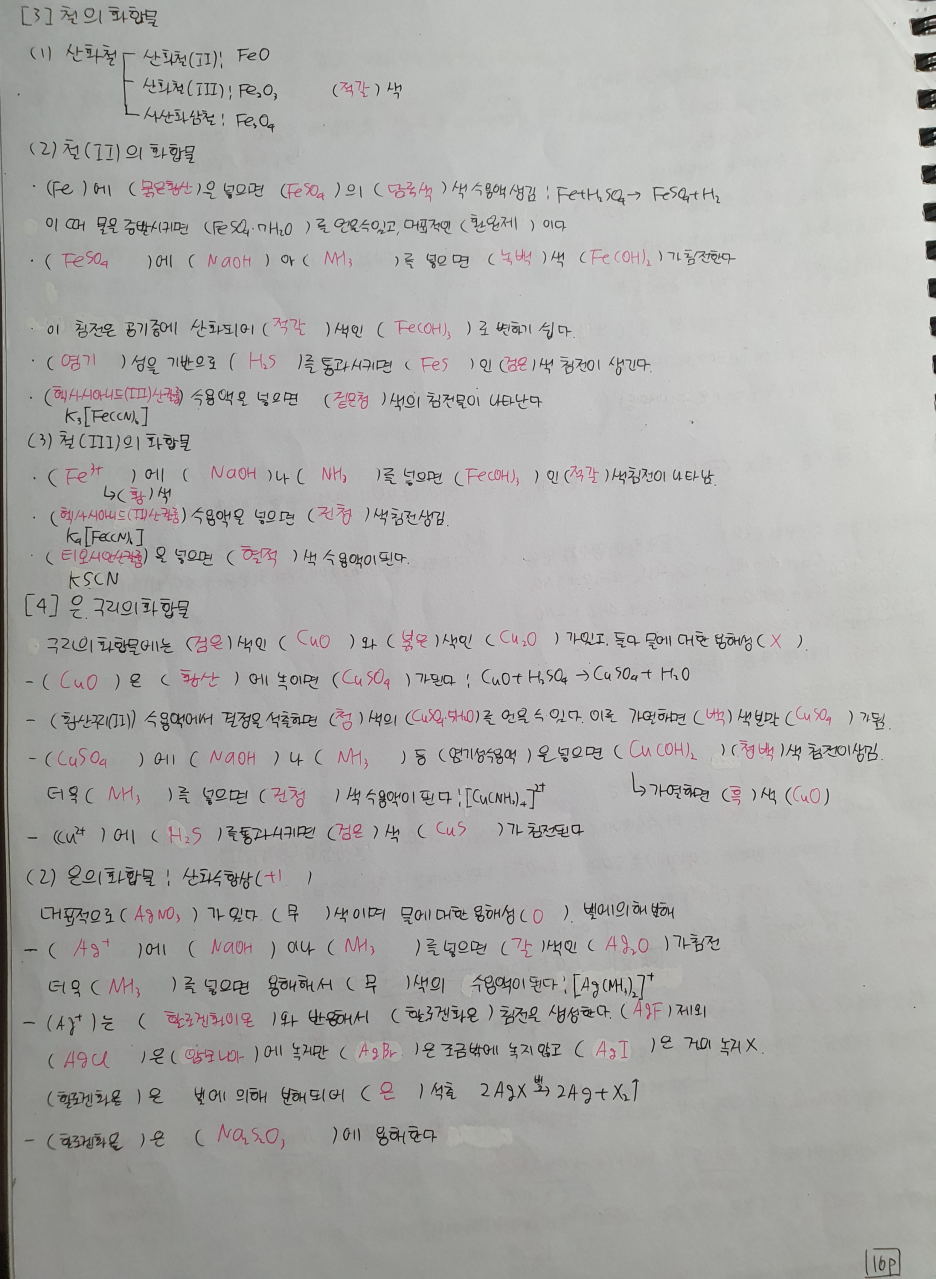 [3] 철의 화합물
(1) 산화철 산화철(II): FeO
산화철(III): Fe₂O₃ (적갈)색
사산화삼철: Fe₃O₄
(2) 철(II)의 화합물
· (Fe)에 (묽은황산)을 넣으면 (FeSO₄)의 (담록색)색 수용액생김: Fe+H₂SO₄→FeSO₄+H₂
이 때 물을 증발시키면 (FeSO₄·7H₂O)를 얻을수있고, 대표적인 (환원제)이다
· (FeSO₄)에 (NaOH)와 (NH₃)를 넣으면 (녹백)색 (Fe(OH)₂)가침전한다
· 이 침전은 공기중에 산화되어 (적갈)색인 (Fe(OH)₃)로 변하기 쉽다.
· (염기)성을 기반으로 (H₂S)를 통과시키면 (FeS)인 (검은)색 침전이 생긴다.
· (헥사시아니드(III)산칼륨) 수용액을 넣으면 (짙은청)색의 침전물이 나타난다
K₃[Fe(CN)₆]
(3) 철(III)의 화합물
· (Fe³⁺)에 (NaOH)나 (NH₃)를 넣으면 (Fe(OH)₃)인 (적갈)색침전이 나타남.
↳(황)색
· (헥사시아니드(II)산칼륨) 수용액을 넣으면 (진청)색침전생김.
K₄[Fe(CN)₆]
· (티오시안산칼륨)을 넣으면 (혈적)색 수용액이된다.
KSCN
[4] 은, 구리의 화합물
구리의 화합물에는 (검은)색인 (CuO)와 (붉은)색인 (Cu₂O)가있고, 둘다 물에 대한 용해성(X).
- (CuO)은 (황산)에 녹이면 (CuSO₄)가된다: CuO+H₂SO₄→CuSO₄+H₂O
- (황산구리(II)) 수용액에서 결정을 석출하면 (청)색의 (CuSO₄·5H₂O)를 얻을 수 있다. 이를 가열하면 (백)색분말 (CuSO₄)가됨.
- (CuSO₄)에 (NaOH)나 (NH₃)등 (염기성수용액)을 넣으면 (Cu(OH)₂)(청백)색 침전이생김.
더욱 (NH₃)를 넣으면 (진청)색 수용액이 된다: [Cu(NH₃)₄]²⁺ ↳가열하면 (흑)색 (CuO)
- (Cu²⁺)에 (H₂S)를통과시키면 (검은)색 (CuS)가 침전된다
(2) 은의 화합물: 산화수항상(+1)
대표적으로 (AgNO₃)가 있다. (무)색이며 물에대한 용해성(O). 빛에의해 분해
- (Ag⁺)에 (NaOH)이나 (NH₃)를 넣으면 (갈)색인 (Ag₂O)가침전
더욱 (NH₃)를 넣으면 용해해서 (무)색의 수용액이 된다: [Ag(NH₃)₂]⁺
- (Ag⁺)는 (할로겐화이온)와 반응해서 (할로겐화은)침전을 생성한다. (AgF)제외
(AgCl)은 (암모니아)에 녹지만 (AgBr)은 조금밖에 녹지 않고 (AgI)은 거의 녹지X.
(할로겐화은)은 빛에 의해 분해되어 (은)석출 2AgX 빛→ 2Ag+X₂↑
- (할로겐화은)은 (Na₂S₂O₃)에 용해한다
16p